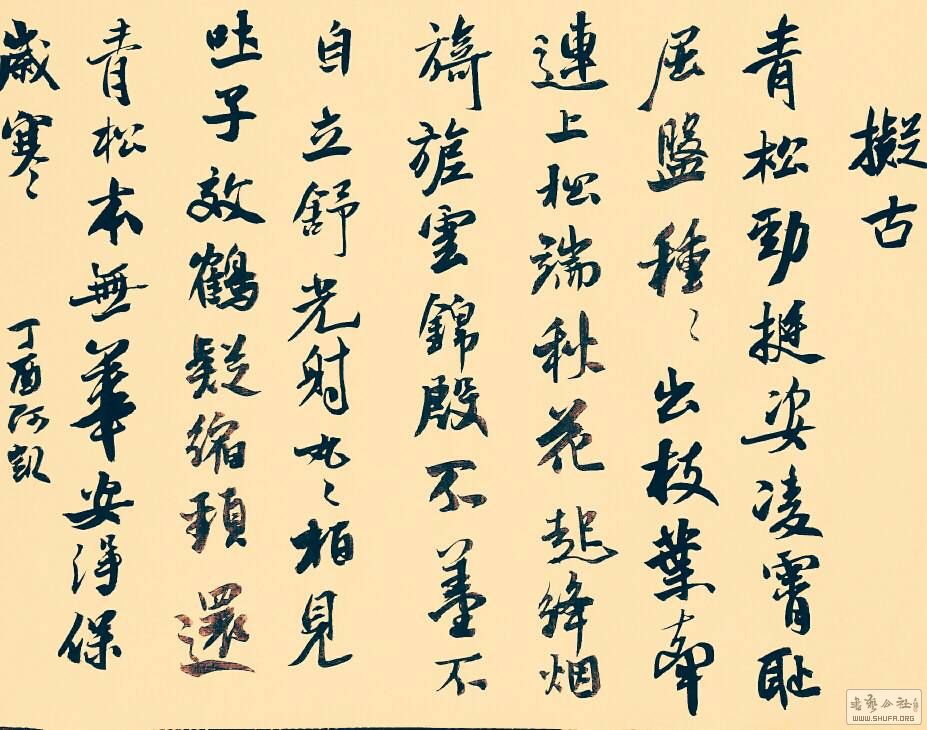 擬古
青松勁挺姿凌霄耻
屈盤種〻出枝葉牽
連上松端秋花起絳烟
旖旎雲錦殷不羞不
自立舒光射丸〻柏見
吐子效鶴疑縮頸還
青松本無華安得保
歲寒〻
丁酉阿凱
書藝公社
WWW.SHUFA.ORG